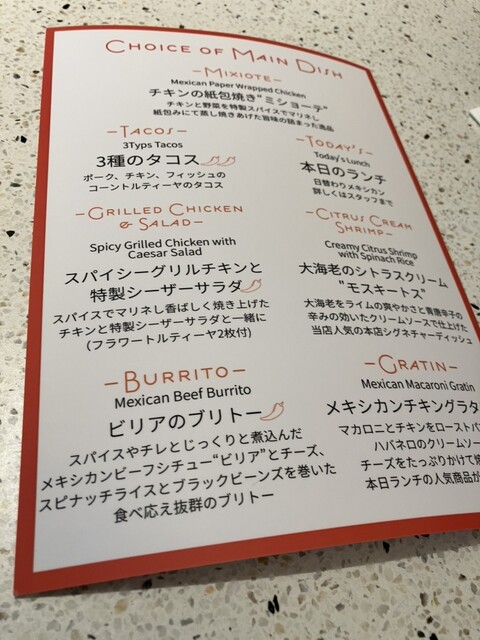 CHOICE OF MAIN DISH
-MIXIOTE-
Mexican Paper Wrapped Chicken
チキンの紙包焼き"ミショーテ"
チキンと野菜を特製スパイスでマリネし
紙包みにて蒸し焼きあげた旨味の詰まった逸品
-TACOS-
3Typs Tacos
3種のタコス
ポーク、チキン、フィッシュの
コーントルティーヤのタコス
-TODAY'S-
Today's Lunch
本日のランチ
日替わりメキシカン
詳しくはスタッフまで
-GRILLED CHICKEN
& SALAD-
Spicy Grilled Chicken with
Caesar Salad
スパイシーグリルチキンと
特製シーザーサラダ
スパイスでマリネし香ばしく焼き上げた
チキンと特製シーザーサラダと一緒に
(フラワートルティーヤ2枚付)
-CITRUS CREAM
SHRIMP-
Creamy Citrus Shrimp
with Spinach Rice
大海老のシトラスクリーム
"モスキートス"
大海老をライムの爽やかさと青唐辛子の
辛みの効いたクリームソースで仕上げた
当店人気の本店シグネチャーディッシュ
-BURRITO-
Mexican Beef Burrito
ビリアのブリトー
スパイスやチレとじっくりと煮込んだ
メキシカンビーフシチュー"ビリア"とチーズ、
スピナッチライスとブラックビーンズを巻いた
食べ応え抜群のブリトー
-GRATIN-
Mexican Macaroni Gratin
メキシカンチキングラタ
マカロニとチキンをローストパ
ハバネロのクリームソー
チーズをたっぷりかけて焼
本日ランチの人気商品が